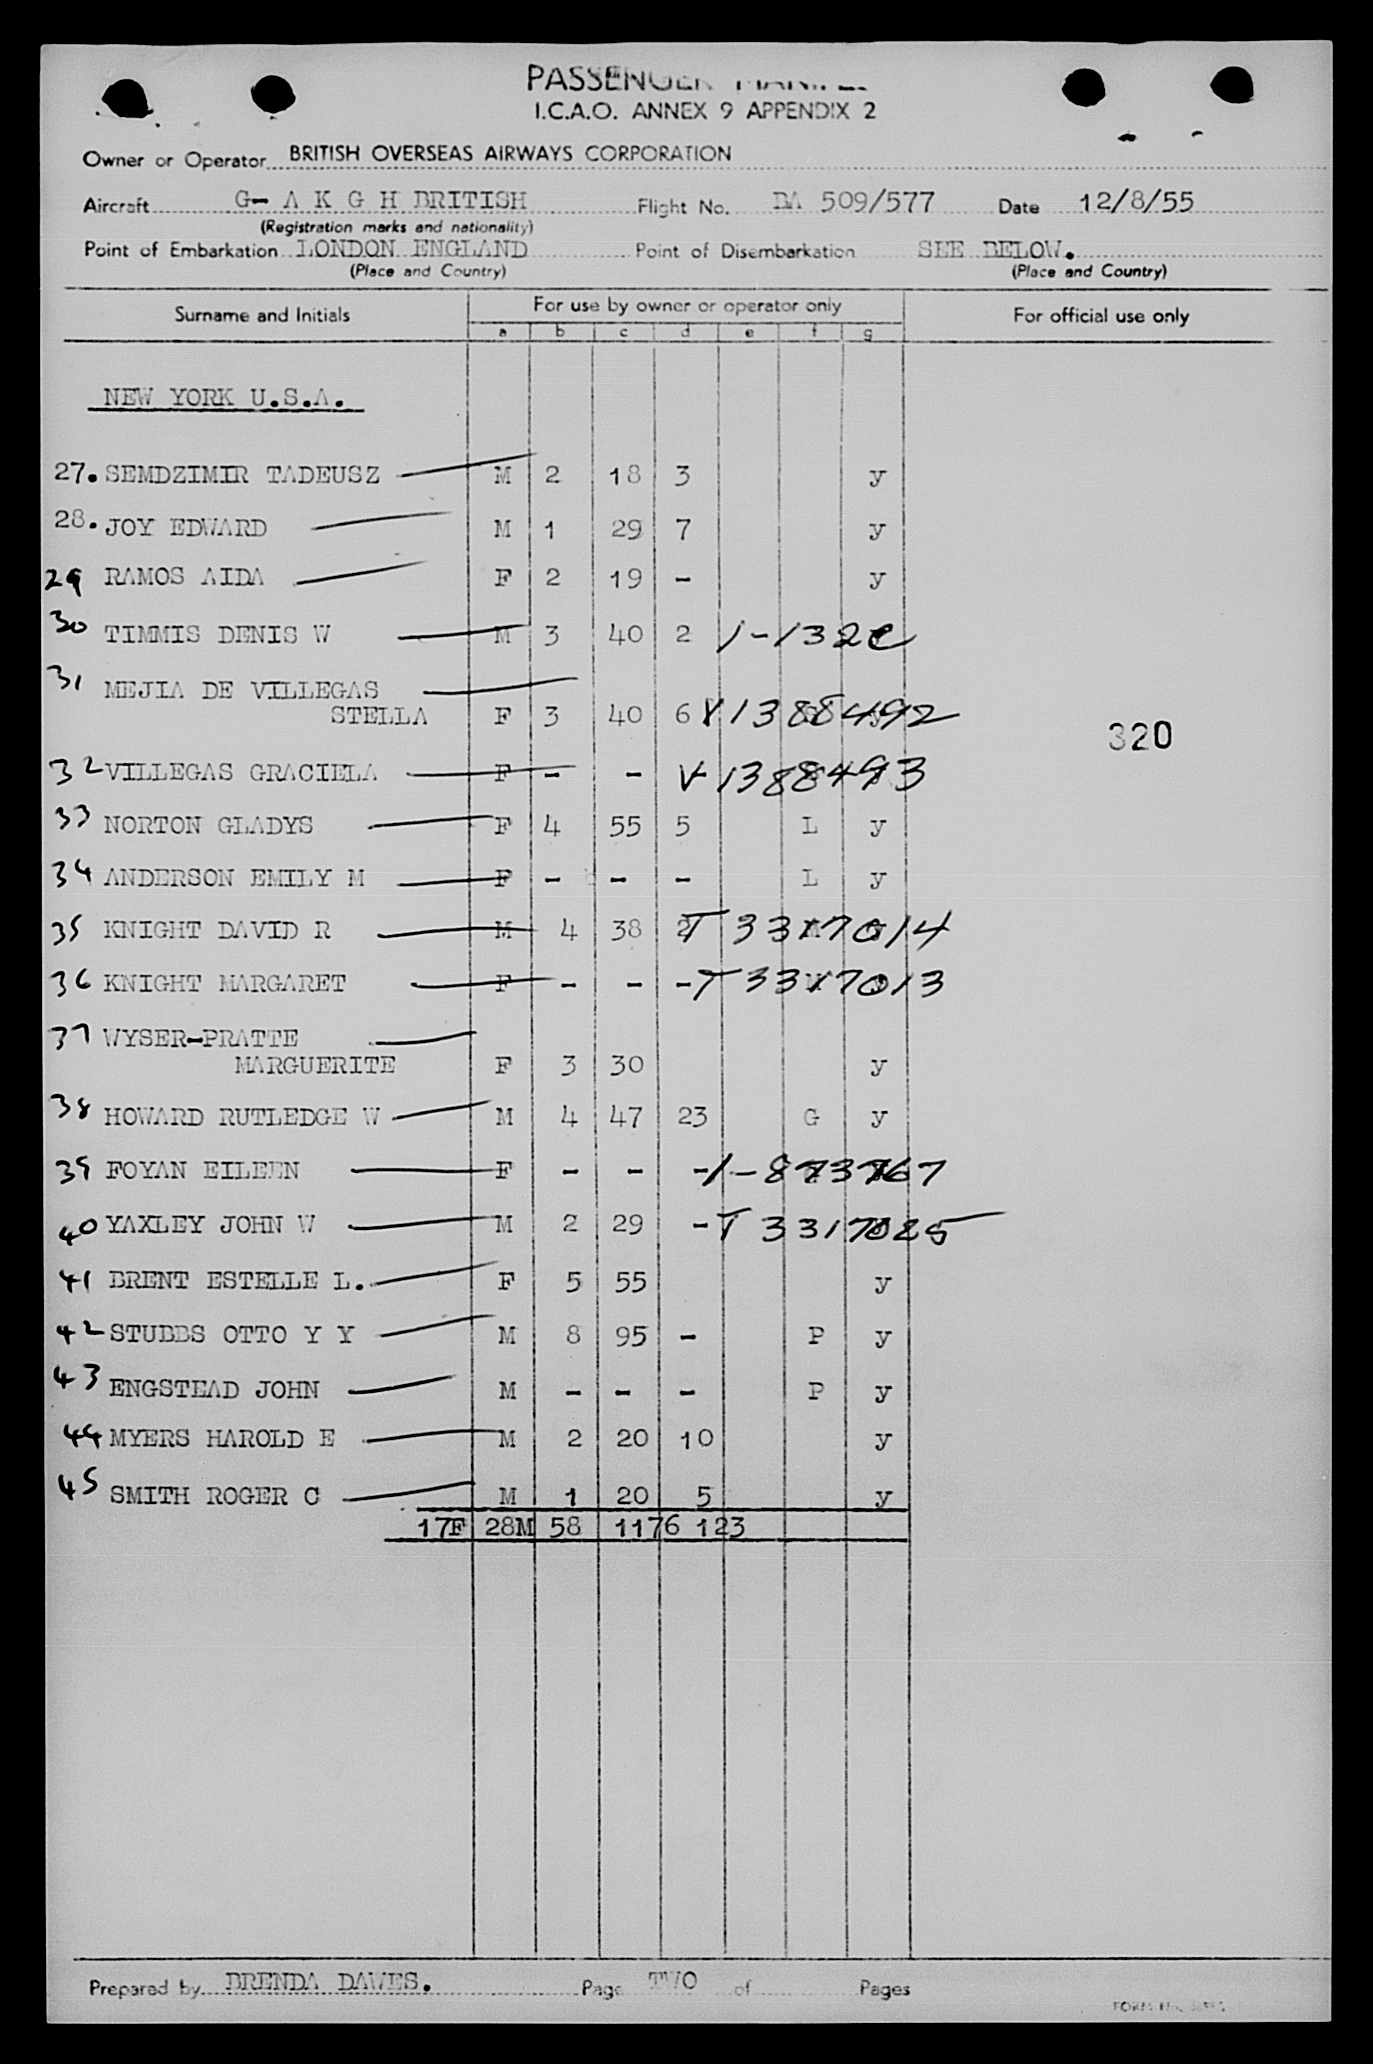 PASSENGER
I.C.A.O. ANNEX 9 APPENDIX 2
Owner or Operator BRITISH OVERSEAS AIRWAYS CORPORATION
Aircraft G- A K G H BRITISH Flight No. BA 509/577 Date 12/8/55
(Registration marks and nationality)
Point of Embarkation LONDON ENGLAND Point of Disembarkation SEE BELOW.
(Place and Country) (Place and Country)
Surname and Initials For use by owner or operator only For official use only
a b c d e f g
NEW YORK U.S.A.
27. SEMDZIMIR TADEUSZ M 2 18 3 y
28. JOY EDWARD M 1 29 7 y
29 RAMOS AIDA F 2 19 - y
30 TIMMIS DENIS W M 3 40 2 1-132
31 MEJIA DE VILLEGAS
STELLA F 3 40 6 V 1388492
32 VILLEGAS GRACIELA F - - V 1388493
33 NORTON GLADYS F 4 55 5 L y
34 ANDERSON EMILY M F - - - L y
35 KNIGHT DAVID R M 4 38 2 T 3317014
36 KNIGHT MARGARET F - - - T 3317013
37 WYSER-PRATTE
MARGUERITE F 3 30 y
38 HOWARD RUTLEDGE W M 4 47 23 G y
39 FOYAN EILEEN F - - - 1-873767
40 YAXLEY JOHN W M 2 29 - T 3317025
41 BRENT ESTELLE L. F 5 55 y
42 STUBBS OTTO Y Y M 8 95 - P y
43 ENGSTEAD JOHN M - - - P y
44 MYERS HAROLD E M 2 20 10 y
45 SMITH ROGER C M 1 20 5 y
17F 28M 58 1176 123
320
Prepared by BRENDA DAWES. Page TWO of Pages